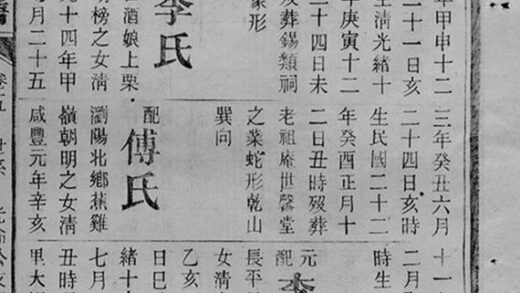 年甲申十二
二十一日亥
生清光緒十
年庚寅十二
二十四日未
歿葬錫類祠
象形
李氏
酒娘上栗
明榜之女清
光十四年甲
月二十五
三年癸丑六月
二十四日亥時
生民國二十二
年癸酉正月十
二日丑時歿葬
老祖庵世馨堂
之業蛇形乾山
巽向
配傅氏
瀏陽北鄉蕉雞
嶺朝明之女清
咸豐元年辛亥
十一
二月
時生
元配李
長平
女清
乙亥
日巳
緒十
七月
丑時
里大